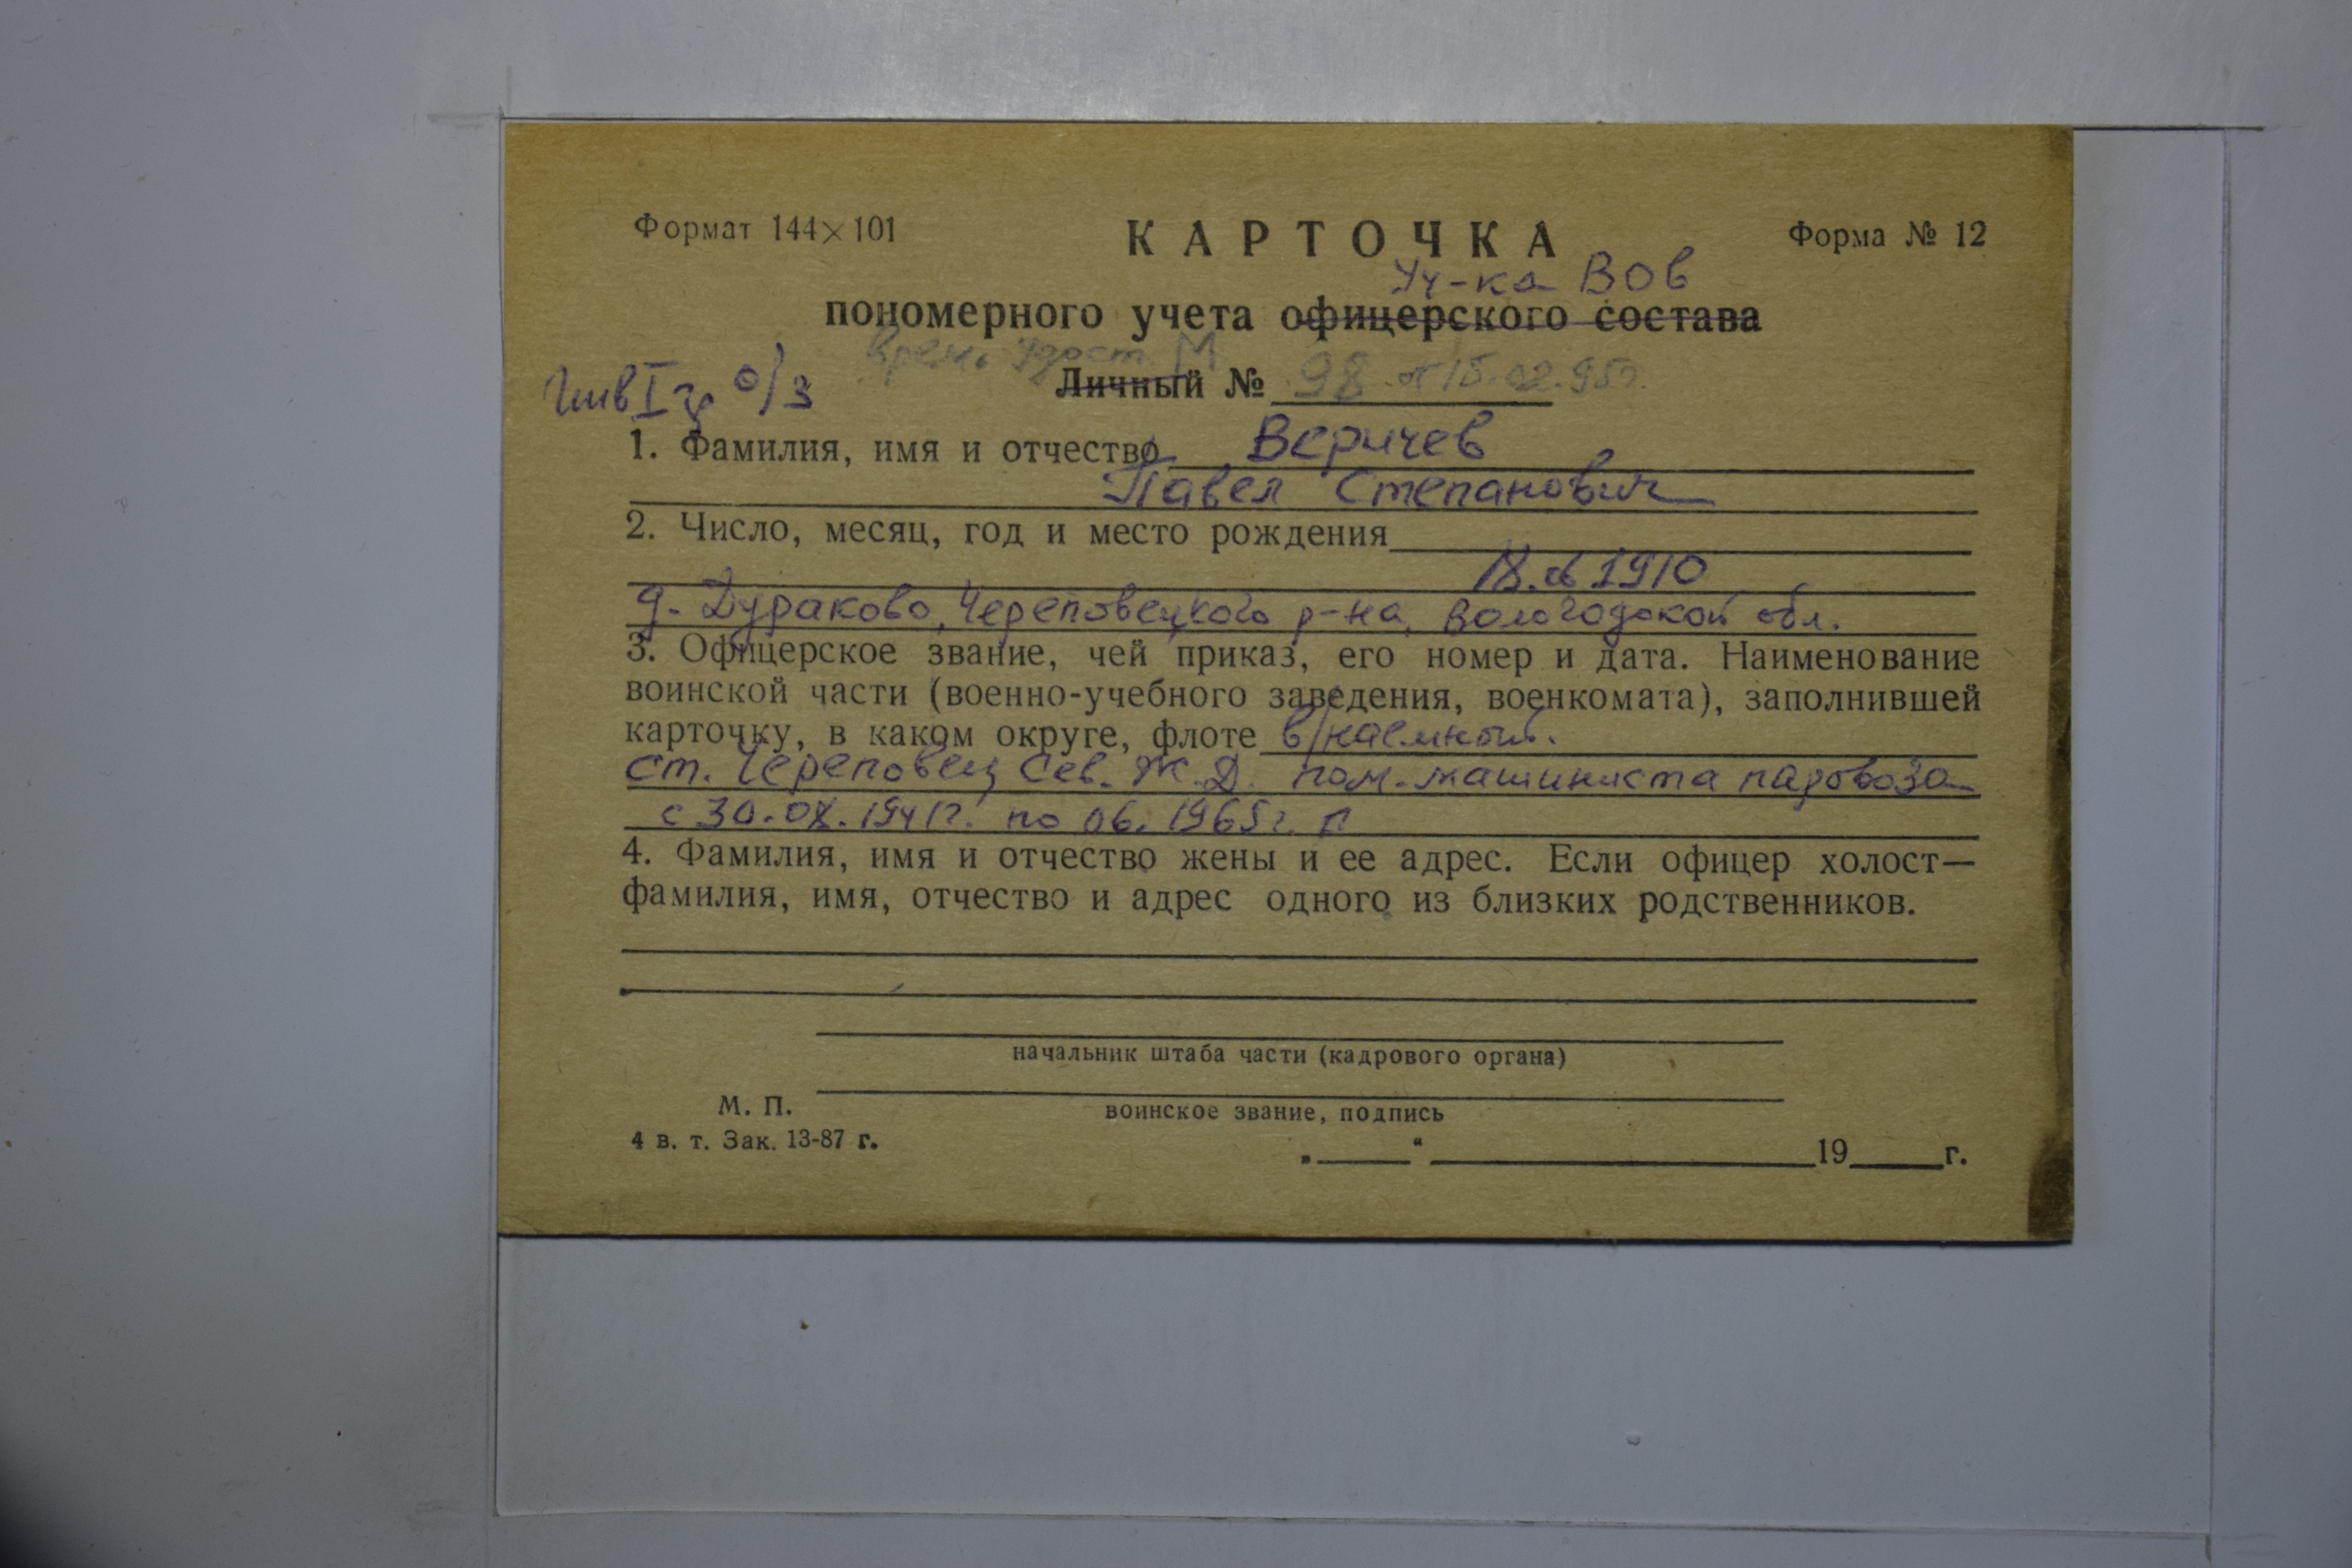 Формат 144×101 КАРТОЧКА Форма № 12
Уч-ка ВОв
пономерного учета офицерского состава
удост. М
Инв I гр о/з Личный № 98 от 15.02.95г.
1. Фамилия, имя и отчество Веричев
Павел Степанович
2. Число, месяц, год и место рождения
1910
д. Дураково, Череповецкого р-на, Вологодской обл.
3. Офицерское звание, чей приказ, его номер и дата. Наименование
воинской части (военно-учебного заведения, военкомата), заполнившей
карточку, в каком округе, флоте в/наемный.
ст. Череповец Сев. Ж.Д. пом. машиниста паровоза
с по 06. 1965г.
4. Фамилия, имя и отчество жены и ее адрес. Если офицер холост—
фамилия, имя, отчество и адрес одного из близких родственников.
начальник штаба части (кадрового органа)
М. П.
воинское звание, подпись
4 в. т. Зак. 13-87 г.
„ “ 19 г.